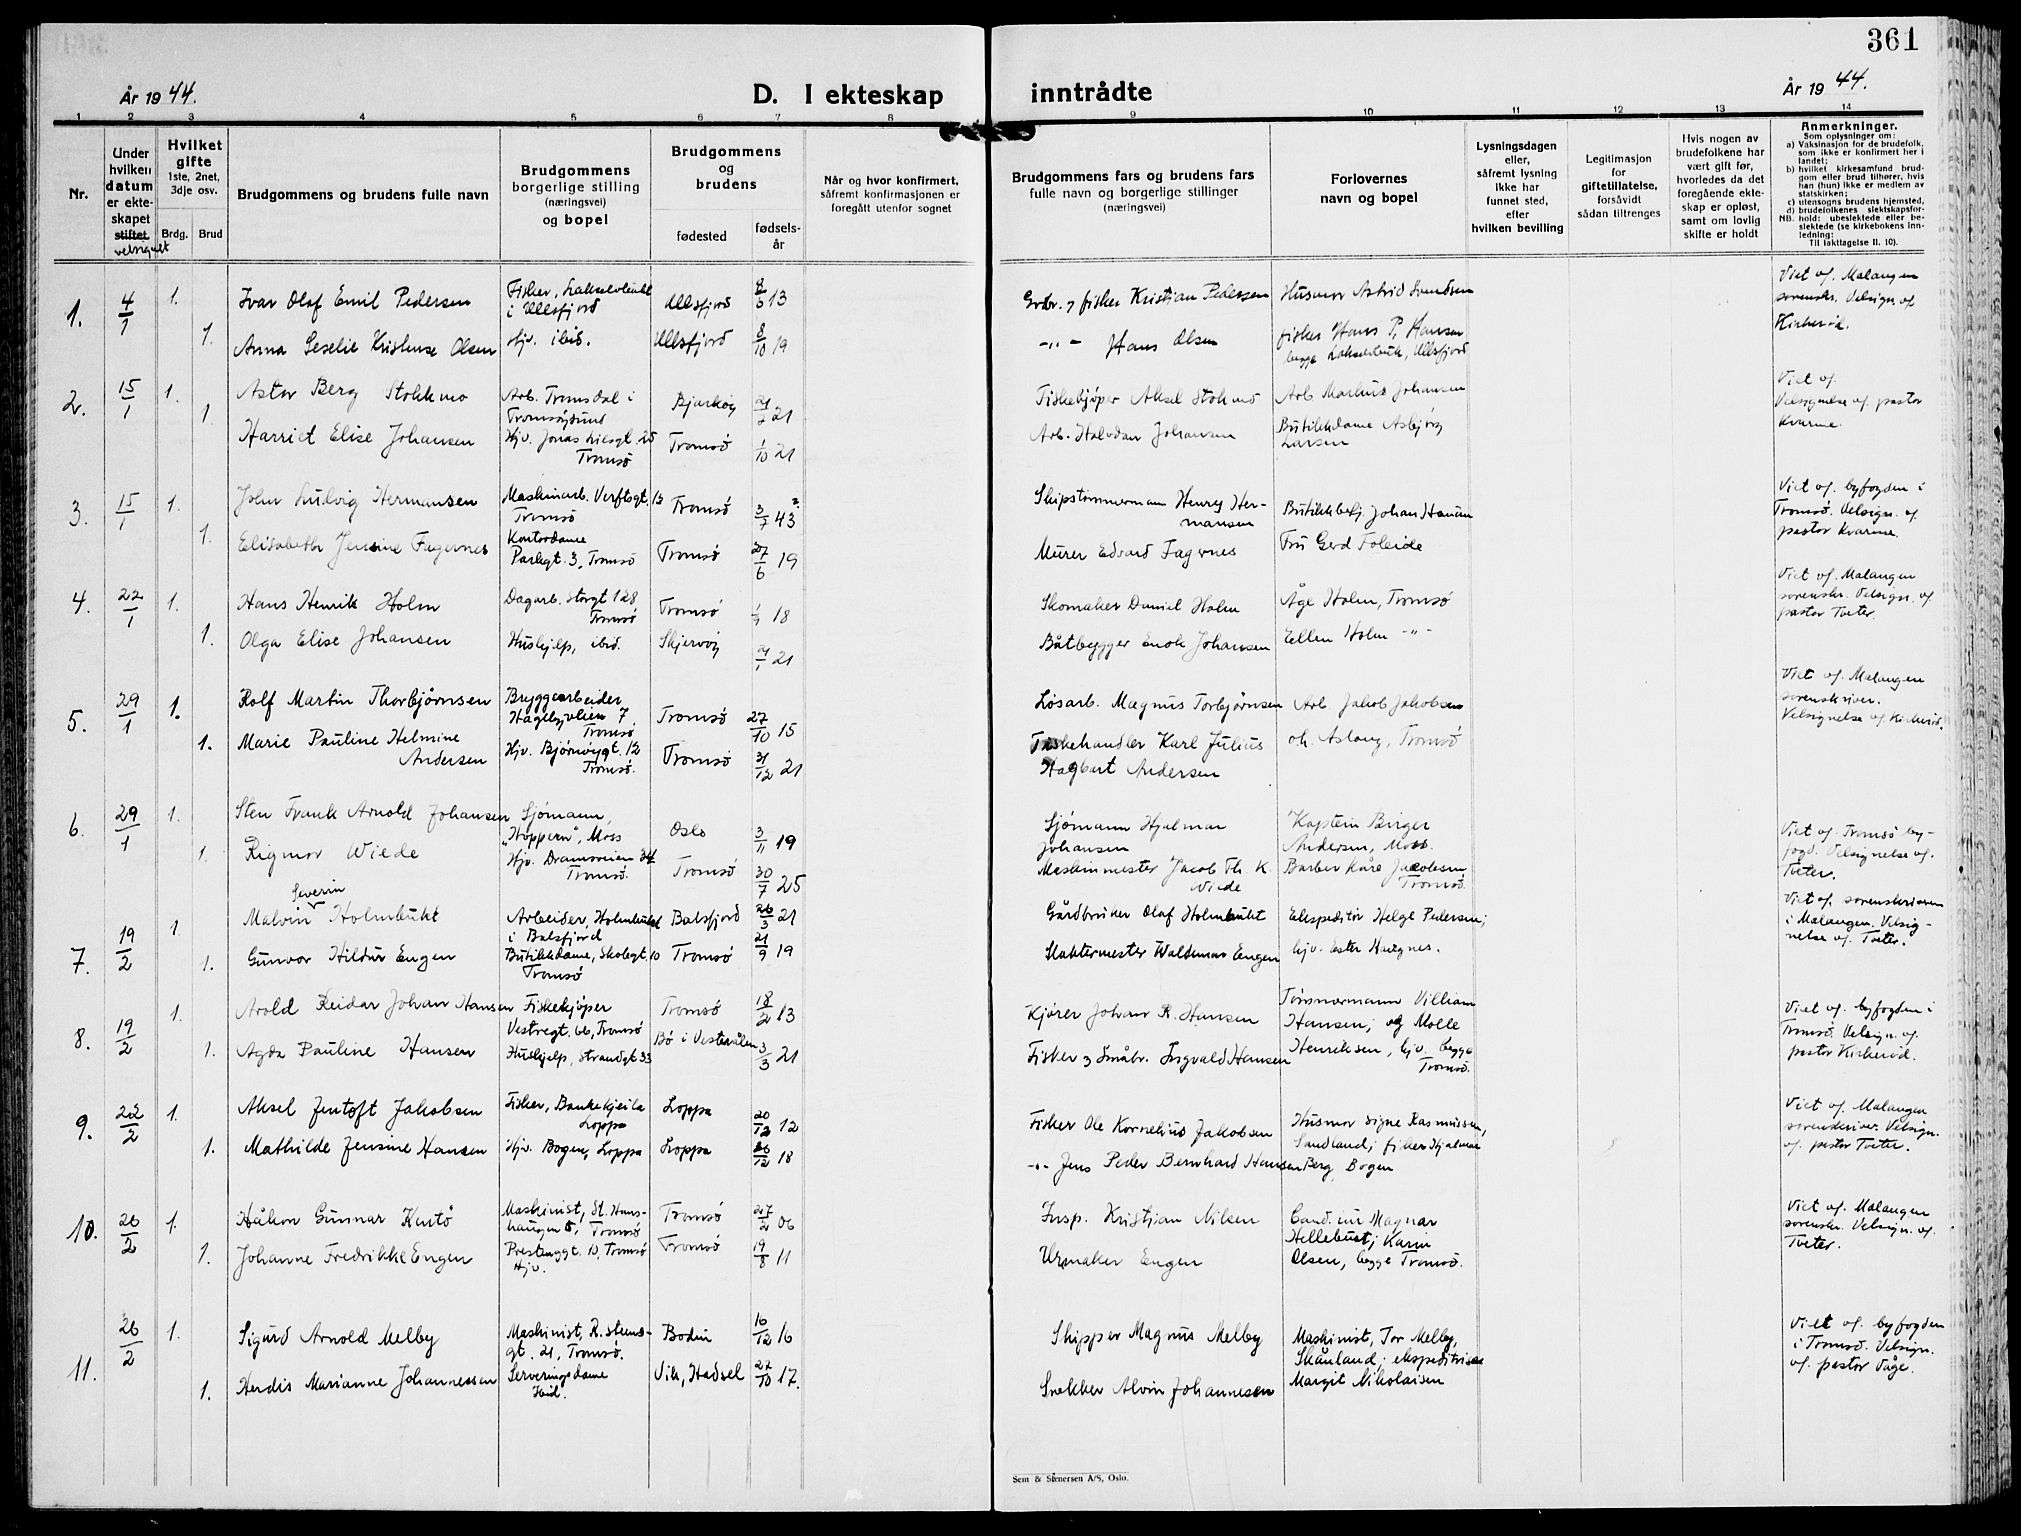 361
År 1944.
D. I ekteskap inntrådte
År 1944.
1 2 3 4 5 6 7 8 9 10 11 12 13 14
Nr.
Under hvilken datum er ekteskapet stiftet velsignet
Hvilket gifte 1ste, 2net, 3dje osv.
Brdg. Brud
Brudgommens og brudens fulle navn
Brudgommens borgerlige stilling (næringsvei) og bopel
Brudgommens og brudens
fødested
fødselsår
Når og hvor konfirmert, såfremt konfirmasjonen er foregått utenfor sognet
Brudgommens fars og brudens fars fulle navn og borgerlige stillinger (næringsvei)
Forlovernes navn og bopel
Lysningsdagen eller, såfremt lysning ikke har funnet sted, efter hvilken bevilling
Legitimasjon for giftetillatelse, forsåvidt sådan tiltrenges
Hvis nogen av brudefolkene har vært gift før, hvorledes da det foregående ekteskap er opløst, samt om lovlig skifte er holdt
Anmerkninger.
Som oplysninger om:
a) Vaksinasjon for de brudefolk, som ikke er konfirmert her i landet;
b) hvilket kirkesamfund brudgom eller brud tilhører, hvis han (hun) ikke er medlem av statskirken;
c) utensogns brudens hjemsted,
d) brudefolkenes slektskapsforhold: ubeslektede eller beslektede (se kirkebokens innledning:
NB. Til iakttagelse II. 10).
1. 4/1 1. Ivar Olaf Emil Pedersen Fisker, i Ullsfjord Ullsfjord 13 Grbr. & fisker Kristian Pedersen Husmor Astrid Viet af. Malangen sorenskr. Velsign. af Kirkerød.
1. Anna Kristense Olsen Hjv. ibid. Ullsfjord 8/10 19 -"- Hans Olsen fisker Hans P. Hansen begge Ullsfjord
2. 15/1 1. Astor Berg Stokkmo Arb. Tromsdal i Tromsøysund Bjarkøy 21 Fiskekjøper Aksel Stokmo Arb. Markus Johansen Viet af. Velsignelse af. pastor Kvarme.
1. Harriet Elise Johansen Hjv. Jonas Liesgt. 25 Tromsø Tromsø 1/10 21 Arb. Halvdan Johansen Butikkdame Asbjørg Larsen
3. 15/1 1. John Ludvig Hermansen Maskinarb. Verftsgt. 13 Tromsø Tromsø 3/7 43 ? Skipstømmermann Henry Hermansen Butikkbetj. Johan Viet af. byfogden i Tromsø. Velsign. af pastor Kvarme.
1. Elisabeth Jensine Fagernes Kontordame Parkgt. 3, Tromsø Tromsø 27/6 19 Murer Edvard Fagernes Fru Gerd
4. 22/1 1. Hans Henrik Holm Dagarb. Storgt 128 Tromsø Tromsø 18 Skomaker Daniel Holm Åge Holm, Tromsø Viet af. Malangen sorenskr. Velsign. af pastor Tveter.
1. Olga Elise Johansen Hushjelp, ibid. Skjervøy 21/1 21 Båtbygger Enok Johansen Ellen Holm -"-
5. 29/1 1. Rolf Martin Thorbjørnsen Bryggearbeider Hagebyveien 7, Tromsø Tromsø 27/10 15 Løsarb. Magnus Torbjørnsen Arb. Jakob Jakobsen Viet af. Malangen sorenskriver. Velsignelse af. Kirkerød.
1. Marie Pauline Helmine Andersen Hjv. Bjørnøygt. 12 Tromsø. Tromsø 31/12 21 Fiskehandler Karl Julius Hagbart Andersen og Aslaug, Tromsø
6. 29/1 1. Sten Frank Arnold Johansen Sjømann, "Hoppern", Moss Oslo 3/11 19 Sjømann Hjalmar Johansen Kaptein Birger Andersen, Moss. Viet af Tromsø byfogd. Velsignelse af. Tveter.
1. Rigmor Wiede Hjv. Dramsveien 34 Tromsø. Tromsø 30/7 25 Maskinmester Jacob Th. K. Wiede Barber Kåre Jacobsen, Tromsø.
7. 19/2 1. Malvin Severin Holmbukt Arbeider, Holmbukt i Balsfjord Balsfjord 26/3 21 Gårdbruker Olaf Holmbukt Ekspeditør Helge Pedersen; Viet af. sorenskriveren i Malangen. Velsignelse af. Tveter.
1. Gunvor Hildur Engen Butikkdame, Skolegt. 10 Tromsø Tromsø 21/9 19 Slaktermester Waldemar Engen hjv. Ester
8. 19/2 1. Arold Reidar Johan Hansen Fiskekjøper Vestregt. 66, Tromsø Tromsø 18/2 13 Kjører Johan R. Hansen Villiam Hansen; og Molle Viet af. byfogden i Tromsø. Velsign. af. pastor Kirkerød.
1. Agda Pauline Hansen Hushjelp, Strandgt 33 Bø i Vesterålen 3/3 21 Fisker & Småbr. Ingvald Hansen Henriksen, hjv. begge Tromsø.
9. 22/2 1. Aksel Zentoft Jakobsen Fisker, Loppa Loppa 20/12 12 Fisker Ole Kornelius Jakobsen Husmor Signe Rasmussen, Viet af. Malangen sorenskriver. Velsign. af. pastor Tveter.
1. Mathilde Jensine Hansen Hjv. Bogen, Loppa Loppa 26/12 18 -"- Jens Peder Bernhard Hansen Sandland; fisker Hjalmar Berg, Bogen
10. 26/2 1. Håkon Gunnar Maskinist, St. Hanshaugen 5, Tromsø Tromsø 27/2 06 Insp. Kristian Nilsen Cand. jur Magnar Viet af. Malangen sorenskr. Velsign. af. Tveter.
1. Johanne Fredrikke Engen Prestengt. 10, Tromsø Hjv. Tromsø 19/8 11 Urmaker Engen Karin Olsen, begge Tromsø.
11. 26/2 1. Sigurd Arnold Melby Maskinist, R. Strandgt. 21, Tromsø. Bodin 16/12 16 Skipper Magnus Melby Maskinist, Tor Melby, Viet af. byfogden i Tromsø. Velsign. af. pastor Våge.
1. Herdis Marianne Johannessen Serveringsdame ibid. Vik, Hadsel 27/10 17. Snekker Alvin Johannesen Skånland; ekspeditrise Margit Nikolaisen
Sem & Stenersen A/S, Oslo.